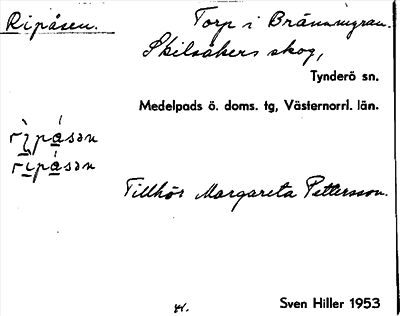 Ripåsen. Torp i Brännmyran.
Skilsåkers skog,
Tynderö sn.
Medelpads ö. doms. tg, Västernorrl. län.
Tillhör Margareta Pettersson.
Sven Hiller 1953